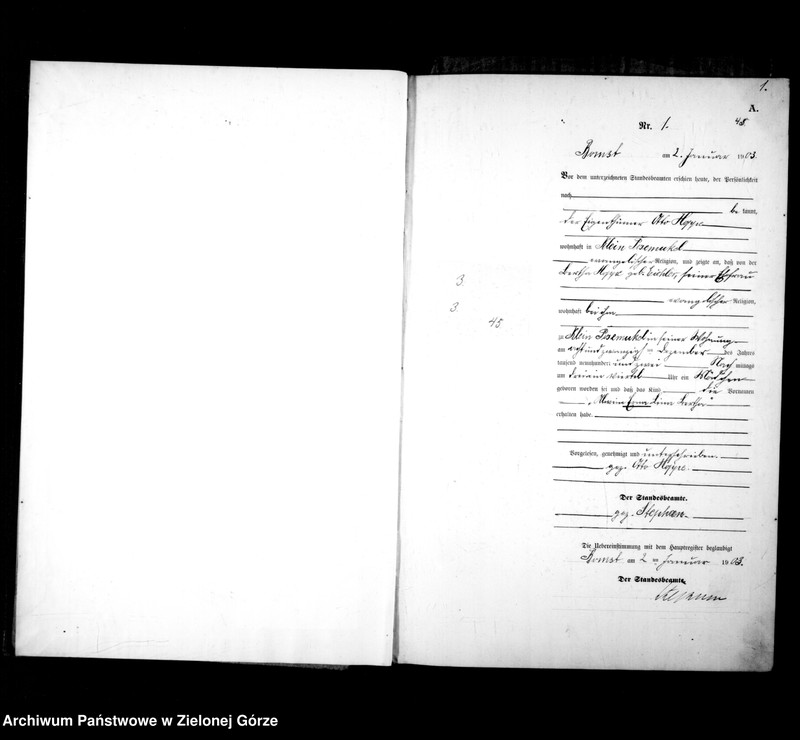 1.
A.
Nr. 1. 48.
Bomst am 2. Januar 1903.
Vor dem unterzeichneten Standesbeamten erschien heute, der Persönlichkeit
nach
bekannt,
der Eigenthümer Otto
wohnhaft in Klein Posemukel
evangelischer Religion, und zeigte an, daß von der
Bertha geb. seiner Ehefrau
evangelischer Religion,
wohnhaft bei ihm
zu Klein Posemukel in seiner Wohnung
am acht und zwanzigsten Dezember des Jahres
tausend neunhundert und zwei Nachmittags
am Uhr ein Mädchen
geboren worden sei und daß das Kind die Vornamen
Maria Erna Bertha
erhalten habe.
3.
3.
45.
Vorgelesen, genehmigt und unterschrieben.
gez. Otto
Der Standesbeamte.
gez. Stephan.
Die Uebereinstimmung mit dem Hauptregister beglaubigt
Bomst am 2 ten Januar 1903.
Der Standesbeamte.
Stephan
Archiwum Państwowe w Zielonej Górze